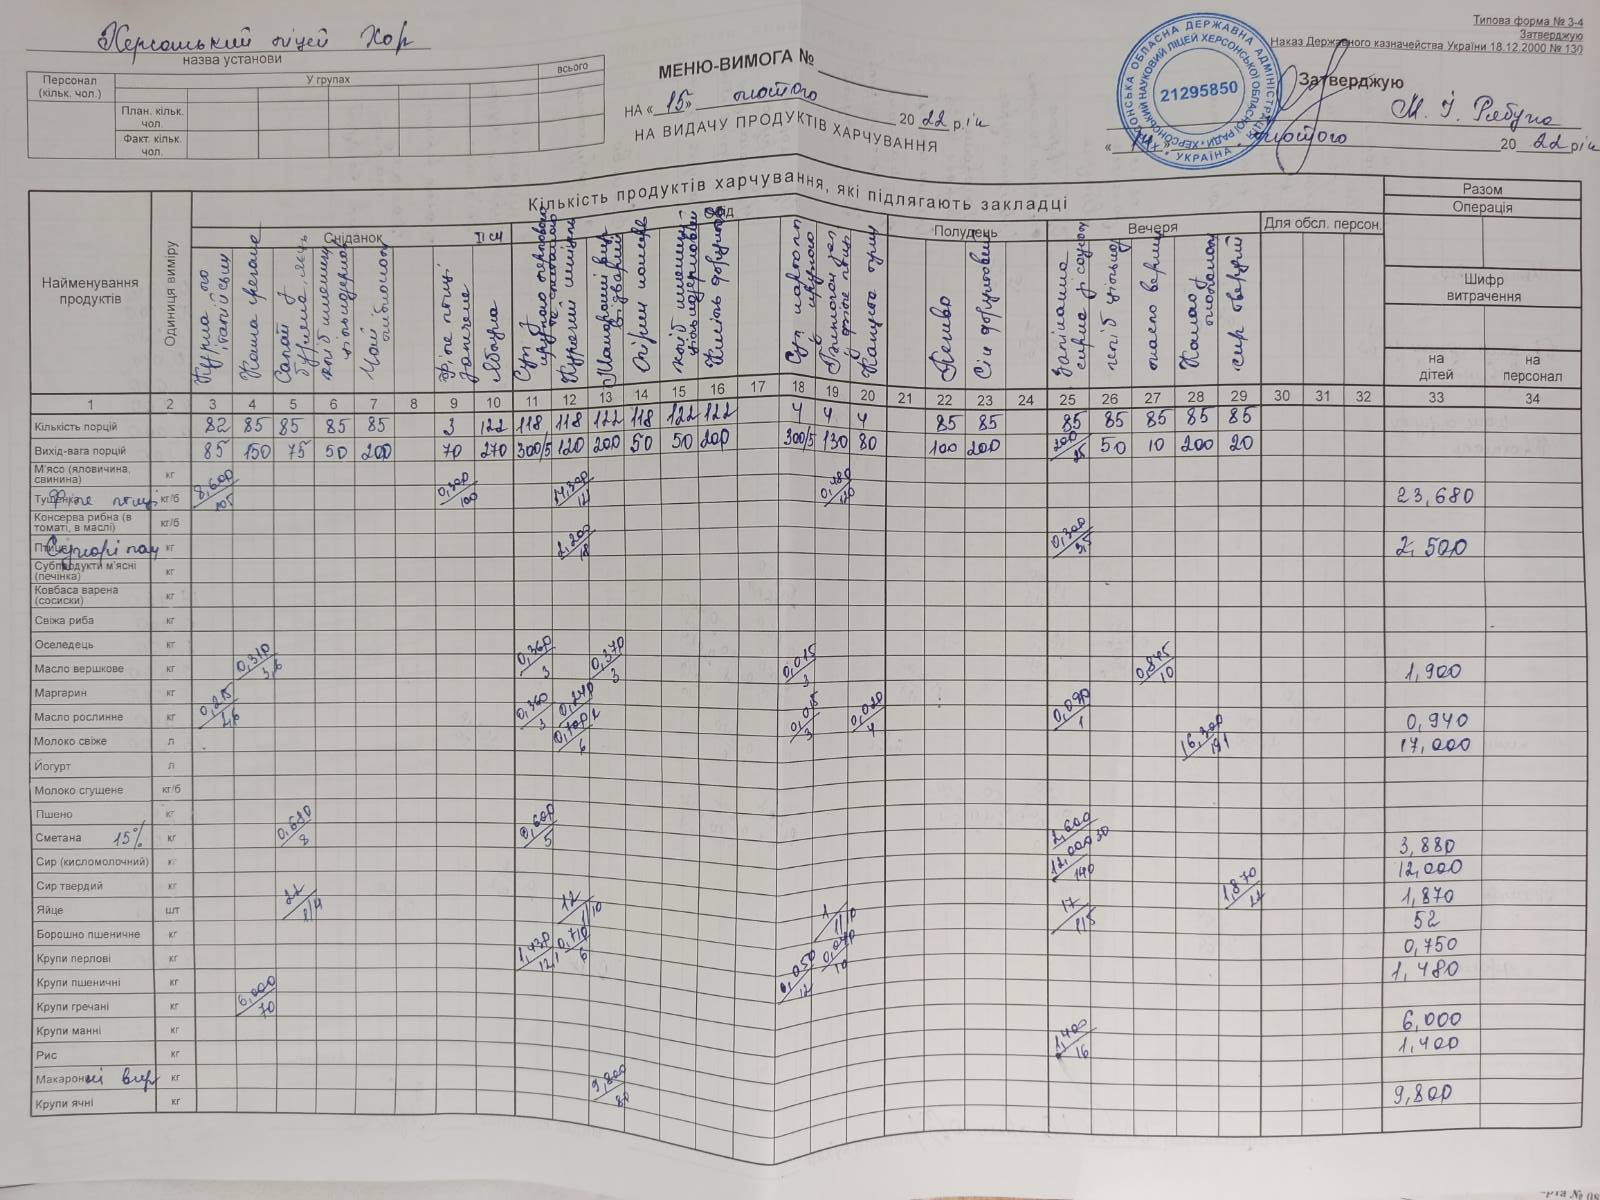 Типова форма № З-4
Затверджую
Наказ Державного казначейства України 18.12.2000 № 130
Херсонський ліцей Хор
назва установи
Персонал (кільк. чол.)
У групах
всього
План. кільк. чол.
Факт. кільк. чол.
МЕНЮ-ВИМОГА №
НА «15» лютого 2022 рік
НА ВИДАЧУ ПРОДУКТІВ ХАРЧУВАННЯ
21295850
УКРАЇНА
Затверджую
М. І. Рябуха
«14» лютого 2022 рік
Найменування продуктів
Одиниця виміру
Кількість продуктів харчування, які підлягають закладці
Сніданок
ІІ сн
Обід
Полудень
Вечеря
Для обсл. персон.
Разом
Операція
Шифр витрачення
на дітей
на персонал
Курка по італійськи
Каша гречана
Салат з буряка
хліб пшениц цільнозернов
Чай з лимоном
Філе птиці запечене
Яблука
Суп з крупою перловою та сметаною
Курячі
Макаронні вир відварні
Огірки
хліб пшениц цільнозерновий
Кисіль
Суп
Капуста туш
Печиво
Сік
Запіканка сирна з соусом
хліб цільноз
масло верш
Какао з молоком
сир твердий
1 2 3 4 5 6 7 8 9 10 11 12 13 14 15 16 17 18 19 20 21 22 23 24 25 26 27 28 29 30 31 32 33 34
Кількість порцій 82 85 85 85 85 3 122 118 118 122 118 122 122 4 4 4 85 85 85 85 85 85 85
Вихід-вага порцій 85 150 75 50 200 70 270 300/5 120 200 50 50 200 300/5 130 80 100 200 200/25 50 10 200 20
М'ясо (яловичина, свинина) кг
Тушенка Філе птиці кг/б 8,600/105 0,300/100 14,300/121 0,480/120 23,680
Консерва рибна (в томаті, в маслі) кг/б
Птиця Сухарі пан кг 2,200/18 0,300/3,5 2,500
Субпродукти м'ясні (печінка) кг
Ковбаса варена (сосиски) кг
Свіжа риба кг
Оселедець кг
Масло вершкове кг 0,310/3,6 0,360/3 0,370/3 0,015/3 0,845/10 1,900
Маргарин кг
Масло рослинне кг 0,215/2,6 0,360/3 0,240/2 0,015/3 0,020/4 0,090/1 0,940
Молоко свіже л 0,700/6 16,300/191 17,000
Йогурт л
Молоко сгущене кг/б
Пшено кг
Сметана 15% кг 0,680/8 0,600/5 2,600/30 3,880
Сир (кисломолочний) кг 12,000/140 12,000
Сир твердий кг 1,870/22 1,870
Яйце шт 22/1/4 12/1/10 1 17/1/5 52
Борошно пшеничне кг 0,710/6 0,040/10 0,750
Крупи перлові кг 1,430/12,1 0,050/12 1,480
Крупи пшеничні кг
Крупи гречані кг 6,000/70 6,000
Крупи манні кг 1,400/16 1,400
Рис кг
Макаронні вир кг 9,800/80 9,800
Крупи ячні кг